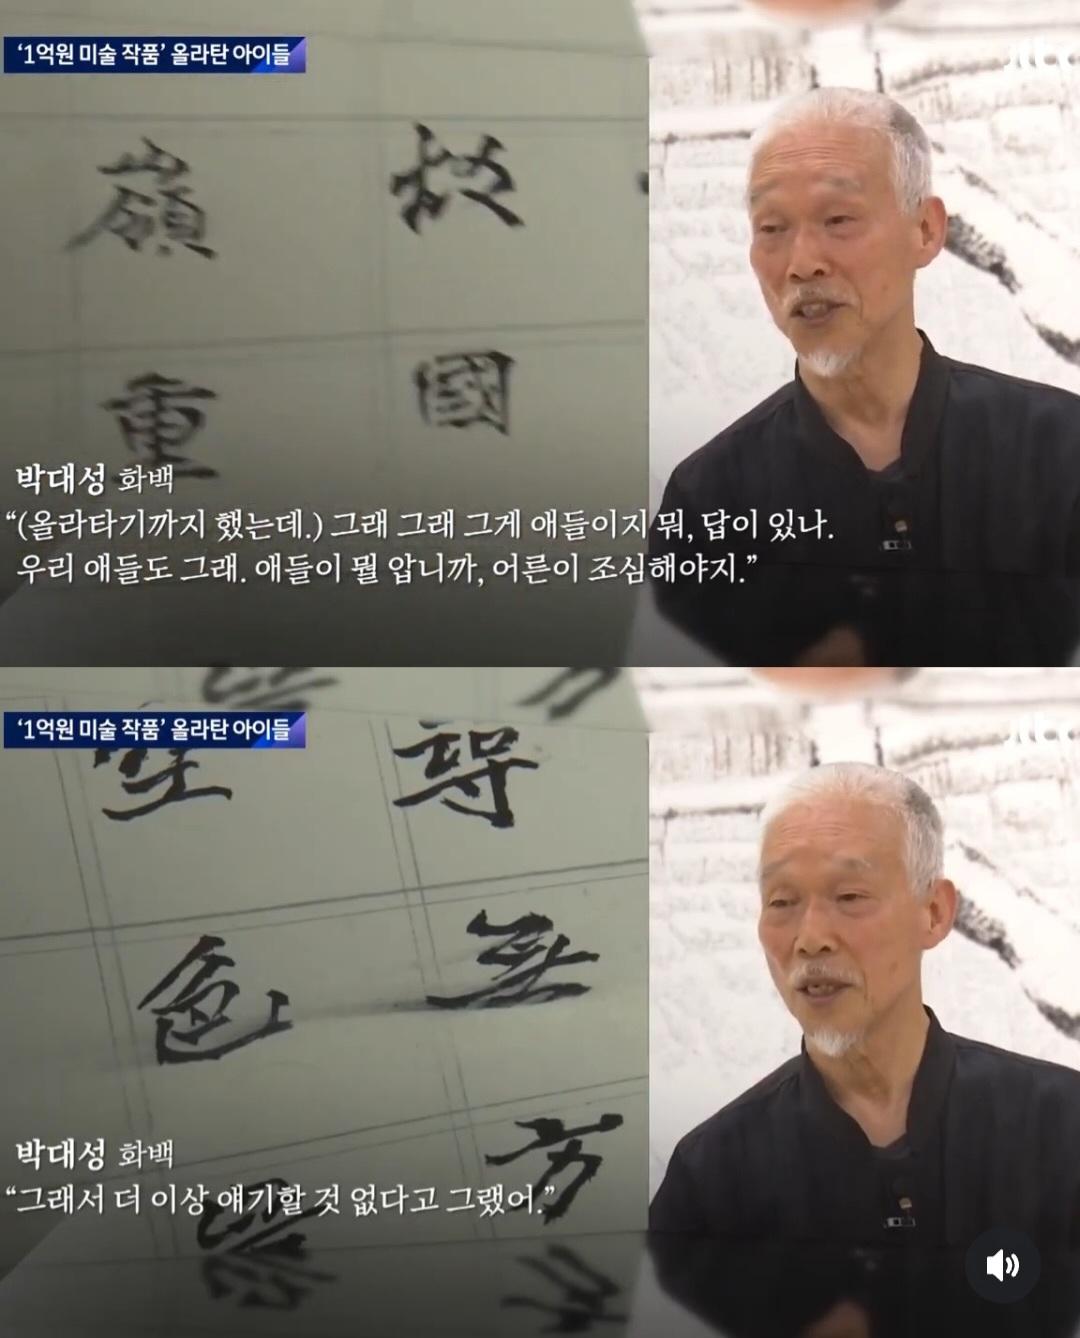 ‘1억원 미술 작품’ 올라탄 아이들
jtbc
嶺
重
國
박대성 화백
“(올라타기까지 했는데.) 그래 그래 그게 애들이지 뭐, 답이 있나.
우리 애들도 그래. 애들이 뭘 압니까, 어른이 조심해야지.”
‘1억원 미술 작품’ 올라탄 아이들
jtbc
色
方
박대성 화백
“그래서 더 이상 얘기할 것 없다고 그랬어.”